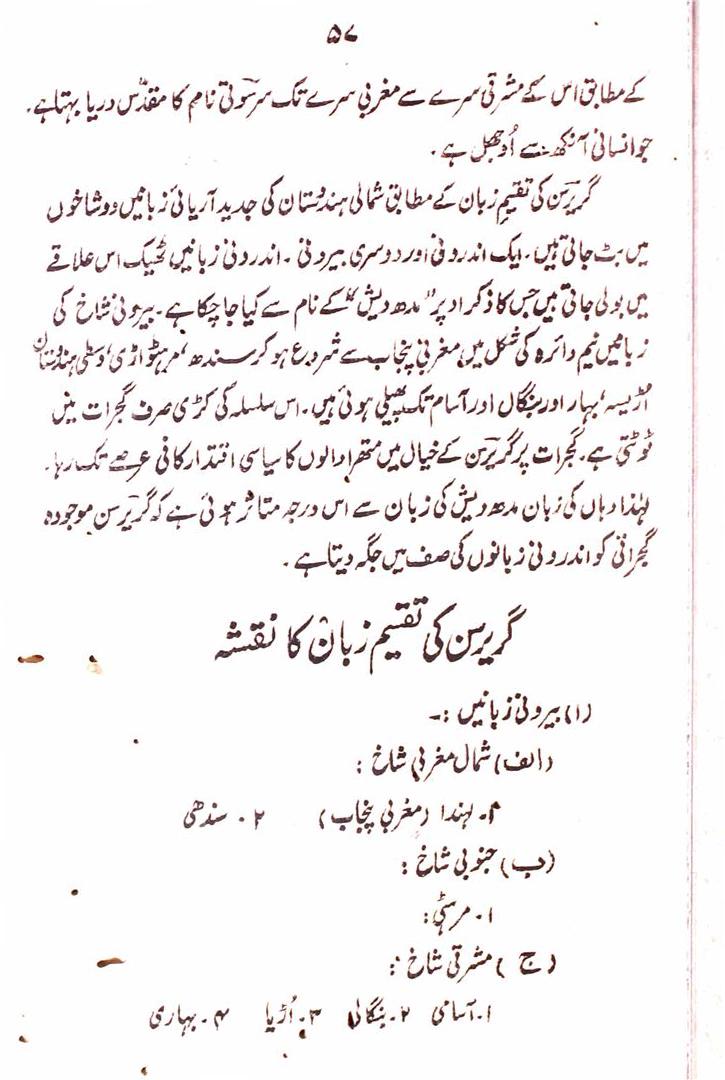 ۵۷
کے مطابق اس کے مشرقی سرے سے مغربی سرے تک سرسوتی نام کا مقدس دریا بہتا ہے۔
جو انسانی آنکھ سے اُوجھل ہے۔
گریرسن کی تقیم زبان کے مطابق شمالی ہندوستان کی جدید آریائی زبانیں دو شاخوں
میں بٹ جاتی ہیں۔ ایک اندرونی اور دوسری بیرونی۔ اندرونی زبانیں ٹھیک اس علاقے
میں بولی جاتی ہیں جس کا ذکر اوپر "مدھ دیش" کے نام سے کیا جا چکا ہے۔ بیرونی شاخ کی
زبانیں نیم دائرہ کی شکل میں مغربی پنجاب سے شروع ہو کر سندھ، مرہٹواڑی، وسطی ہندوستان
اڑیسہ، بہار اور بنگال اور آسام تک پھیلی ہوئی ہیں۔ اس سلسلہ کی کڑی صرف گجرات میں
ٹوٹتی ہے۔ گجرات پر گریرسن کے خیال میں متھرا والوں کا سیاسی اقتدار کافی عرصے تک رہا۔
لہٰذا وہاں کی زبان مدھ دیش کی زبان سے اس درجہ متاثر ہوئی ہے کہ گریرسن موجودہ
گجراتی کو اندرونی زبانوں کی صف میں جگہ دیتا ہے۔
گریرسن کی تقسیم زبان کا نقشہ
(۱) بیرونی زبانیں :۔
(الف) شمال مغربی شاخ :
۱۔ لہندا (مغربی پنجاب) ۲۔ سندھی
(ب) جنوبی شاخ :
۱۔ مرہٹی :
(ج) مشرقی شاخ :
۱۔ آسامی ۲۔ بنگالی ۳۔ اُڑیا ۴۔ بہاری